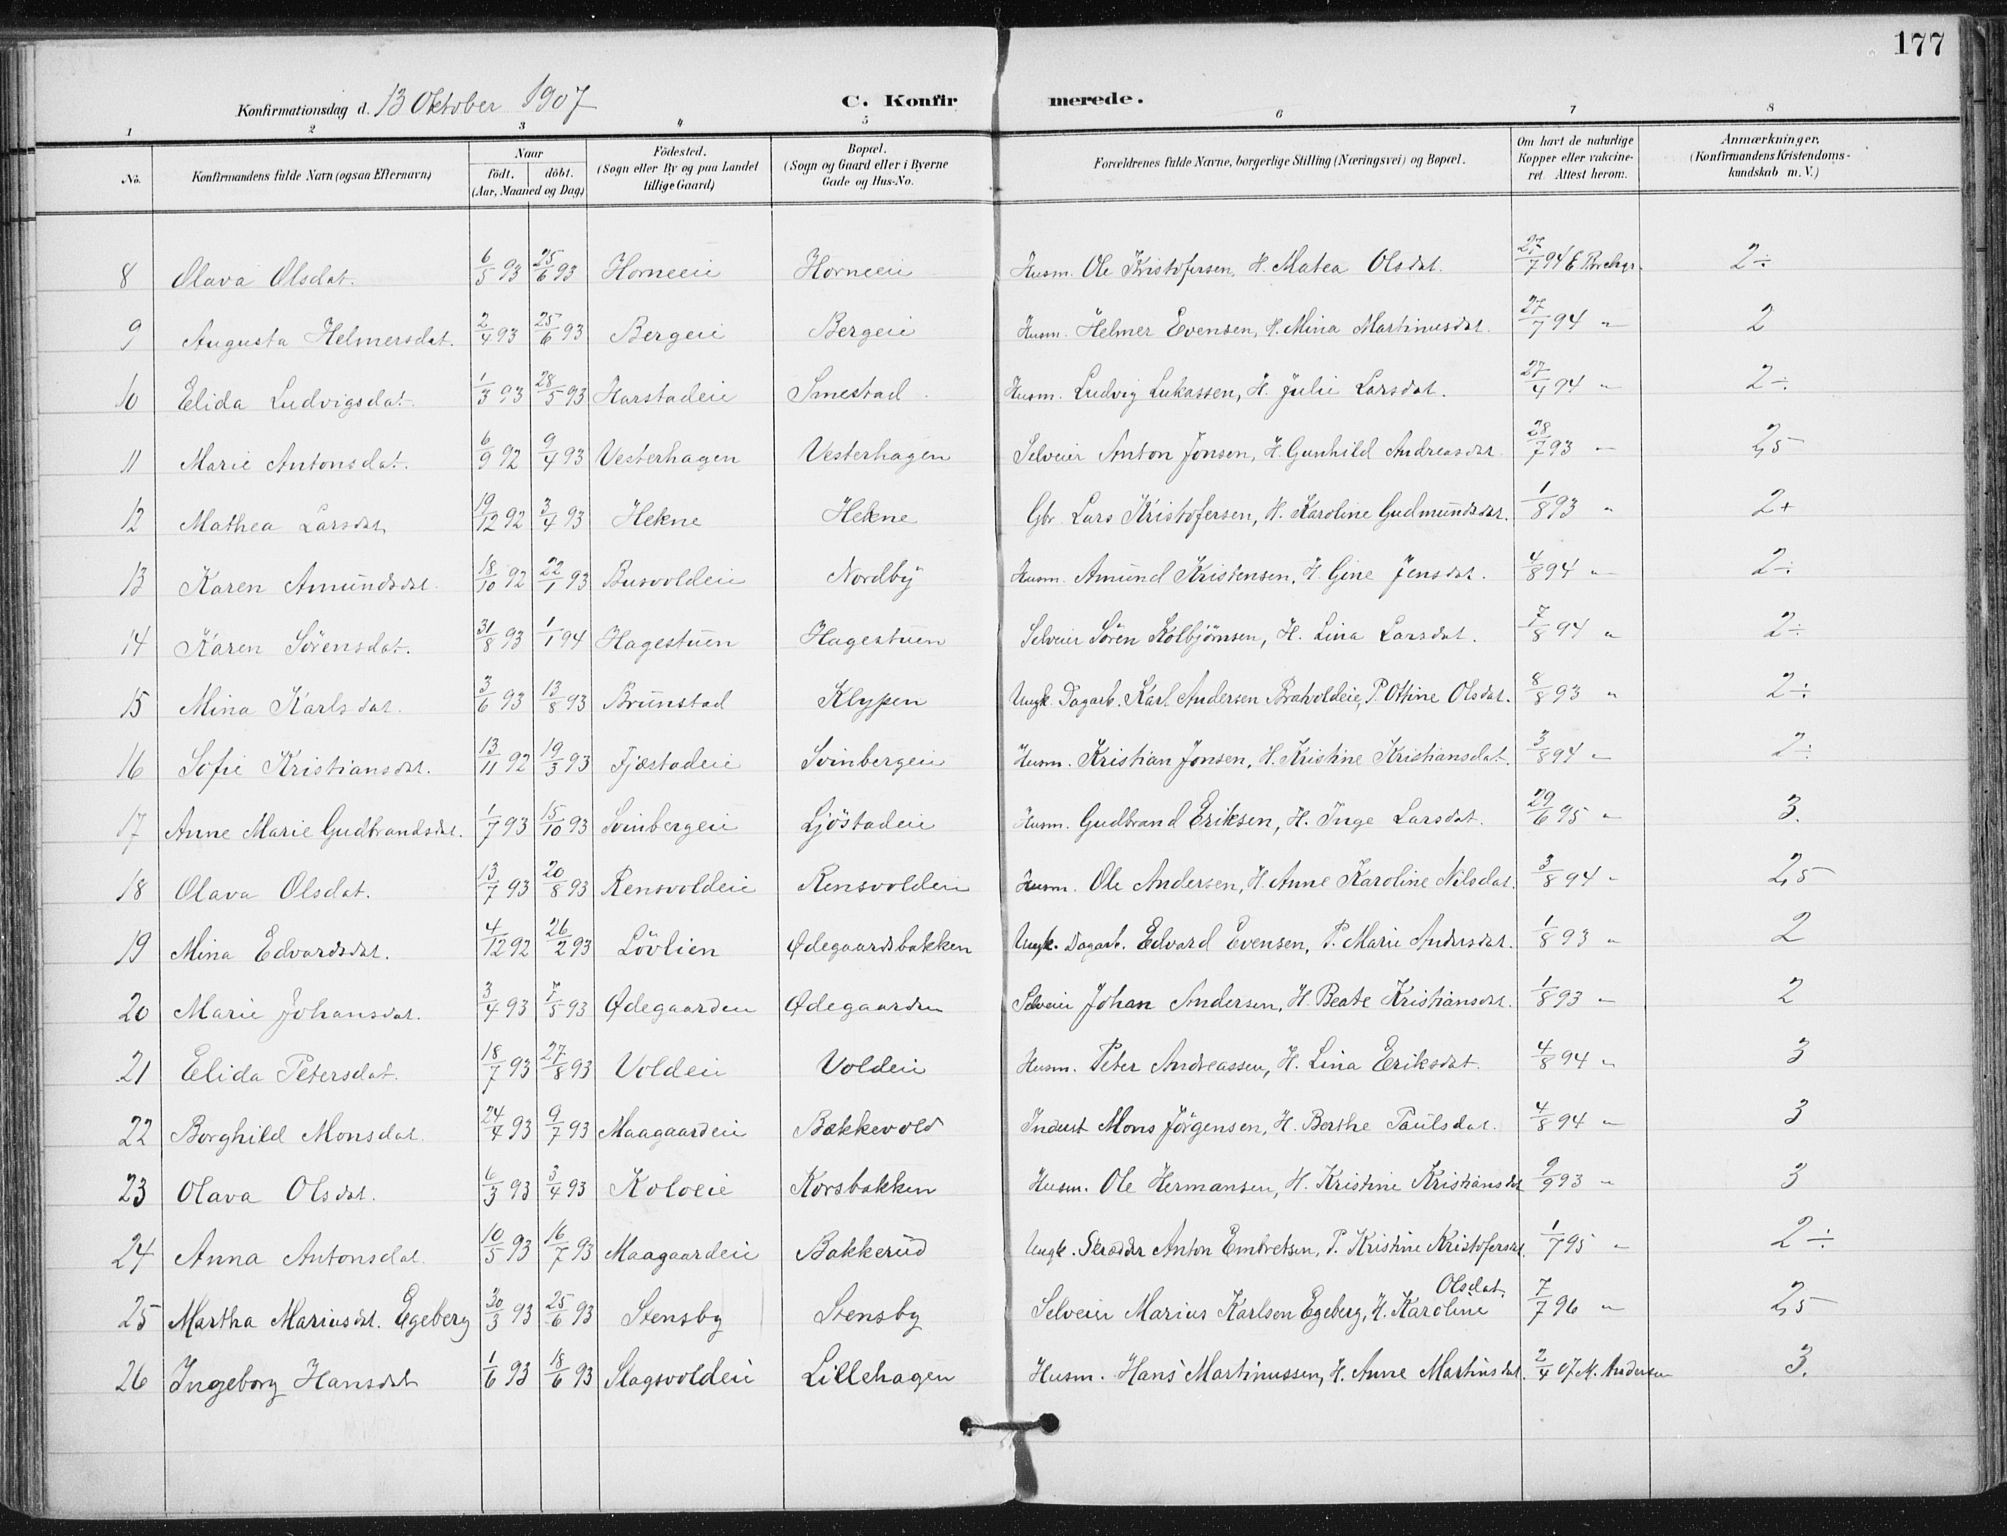 177
Konfirmationsdag d. 13 Oktober 1907 C. Konfirmerede.
1 2 3 4 5 6 7 8
No. Konfirmandens fulde Navn (ogsaa Efternavn) Naar födt. döbt. (Aar, Maaned og Dag) Födested. (Sogn eller By og paa Landet tillige Gaard) Bopæl. (Sogn og Gaard eller i Byerne Gade og Hus-No. Forældrenes fulde Navne, borgerlige Stilling (Næringsvei) og Bopæl. Om havt de naturlige Kopper eller vakcineret. Attest herom. Anmærkninger, (Konfirmandens Kristendomskundskab m. V.)
8 Olava Olsdat. 6/5 93 25/6 93 Horneeie Horneeie Husm. Ole Kristofersen, H. Matea Olsdat. 27/7 94 E Borchgr. 2÷
9 Augusta Helmersdat. 2/4 93 25/6 93 Bergeie Bergeie Husm. Helmer Evensen, H. Mina Martinusdat. 27/7 94 " 2
10 Elida Ludvigsdat. 1/3 93 28/5 93 Harstadeie Smestad Husm. Ludvig Lukassen, H. Julie Larsdat. 27/4 94 " 2÷
11 Marie Antonsdat. 6/9 92 9/4 93 Vesterhagen Vesterhagen Selveier Anton Jonsen, H. Gunhild Andreasdat. 28/7 93 " 2,5
12 Mathea Larsdat. 19/12 92 3/4 93 Hekne Hekne Gbr. Lars Kristofersen, H. Karoline Gudmundsdat. 1/8 93 " 2+
13 Karen Amundsdat. 18/10 92 22/1 93 Busvoldeie Nordby Husm. Amund Kristensen, H. Gine Jensdat. 4/8 94 " 2÷
14 Karen Sörensdat. 31/8 93 1/1 94 Hagestuen Hagestuen Selveier Sören Kolbjörnsen, H. Lina Larsdat. 7/8 94 " 2÷
15 Mina Karlsdat. 3/6 93 13/8 93 Brunstad Klypen Ungk. Dagarb. Karl Andersen Braholdeie, P. Ottine Olsdat. 8/8 93 " 2÷
16 Sofie Kristiansdat. 13/11 92 19/3 93 Fjæstadeie Svinbergeie Husm. Kristian Jonsen, H. Kristine Kristiansdat. 3/8 94 " 2÷
17 Anne Marie Gudbrandsdat. 1/7 93 15/10 93 Svinbergeie Ljöstadeie Husm. Gudbrand Eriksen, H. Inge Larsdat. 29/6 95 " 3.
18 Olava Olsdat. 13/7 93 20/8 93 Rensvoldeie Rensvoldeie Husm. Ole Andersen, H. Anne Karoline Nilsdat. 3/8 94 " 2,5
19 Mina Edvardsdat. 4/12 92 26/2 93 Lövlien Ødegaardsbakken Ungk. Dagarb. Edvard Evensen, P. Marie Andersdat. 1/8 93 " 2
20 Marie Johansdat. 3/4 93 7/5 93 Ødegaarden Ødegaarden Selveier Johan Andersen, H. Beate Kristiansdat. 1/8 93 " 2
21 Elida Petersdat. 18/7 93 27/8 93 Voldeie Voldeie Husm. Peter Andreassen, H. Lina Eriksdat. 4/8 94 " 3
22 Borghild Monsdat. 24/4 93 9/7 93 Maagaardeie Bakkevold Inderst Mons Jörgensen, H. Berthe Paulsdat. 4/8 94 " 3
23 Olava Olsdat. 6/3 93 3/4 93 Koloeie Korsbakken Husm. Ole Hermansen, H. Kristine Kristiansdat 2/9 93 " 3
24 Anna Antonsdat. 10/5 93 16/7 93 Maagaardeie Bakkerud Ungk. Skrædder Anton Embretsen, P. Kristine Kristofersdat. 1/7 95 " 2÷
25 Martha Mariusdat. Egeberg 30/3 93 25/6 93 Stensby Stensby Selveier Marius Karlsen Egeberg, H. Karoline Olsdat. 7/7 96 " 2,5
26 Ingeborg Hansdat 1/6 93 18/6 93 Slagsvoldeie Lillehagen Husm. Hans Martinussen, H. Anne Martinsdat. 2/4 07 M. Andersen 3.